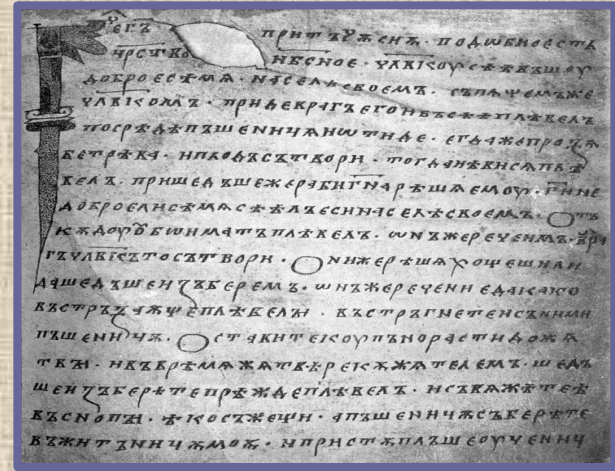 сиѭ · подобно естъ
ц҃рство н҃бсное · ч҃лвкѹ сѣѣвъшоу
доброе сѣмѧ · на селѣ своемъ · съпѧщемъже
ч҃лвкомъ · приде врагъ его и въсѣѣ плѣвелъ
посрѣдѣ пъшеницѧ и ѡтиде · егдаже прозѧ
бе трѣва · и плодъ сътвори · тогда ѣви сѧ плѣ
велъ · пришедъшеже раби г҃на рѣшѧ емоу · г҃и не
доброе ли сѣмѧ сѣѣлъ еси на селѣ своемъ · Отъ
кѫдоу ѹбѡ иматъ плѣвелъ · ѡнъже рече имъ · вра
гъ ч҃лвкъ сътвори · Ониже рѣшѧ хощеши ли
да шедъше иꙁъберемъ · ѡнъже рече ни еда како
въстръꙁаѭще плѣвелы · въстръгнете и съ ними
пъшеницѫ · Оставите коупъно расти до жѧ
твы · и въ врѣмѧ жѧтвѣ рекѫ жѧтелемъ · шедъ
ше иꙁъберѣте прѣжде плѣвелъ · и съвѧжѣте ѣ
въ снопы · ѣко съжещи · а пъшеницѫ съберѣте
въ житъницѫ моѭ · и пристѫплъше оучениц